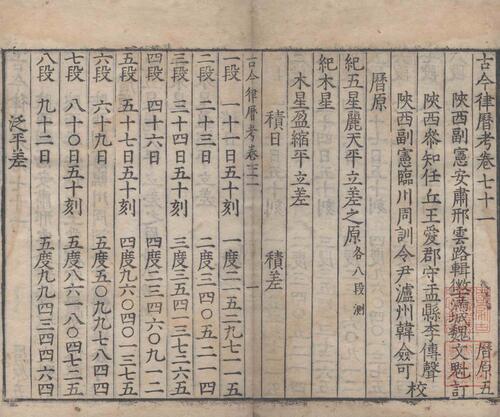 古今律曆考卷七十一　曆原五
陝西副憲安肅邢雲路輯徽滿城魏文魁訂
陝西叅知任丘王愛郡守盂縣李傳聲
陝西副憲臨川周訓令尹瀘州韓僉可校
曆原
紀五星麗天平立差之原各八段測
紀木星
木星盈縮平立差
積日　積差
古今律曆考卷七十一　一
一段　一十一日五十刻　一度二一五二九七一一
二段　二十三日　二度三四〇五二一四
三段　三十四日五十刻　三度三五四一三七二六
四段　四十六日　四度二三四六〇九一二
五段　五十七日五十刻　四度九六〇四〇一三七五
六段　六十九日　五度五〇九九七八四四
七段　八十〇日五十刻　五度八六一八〇四七二五
八段　九十二日　五度九九四三四四六四
泛平差